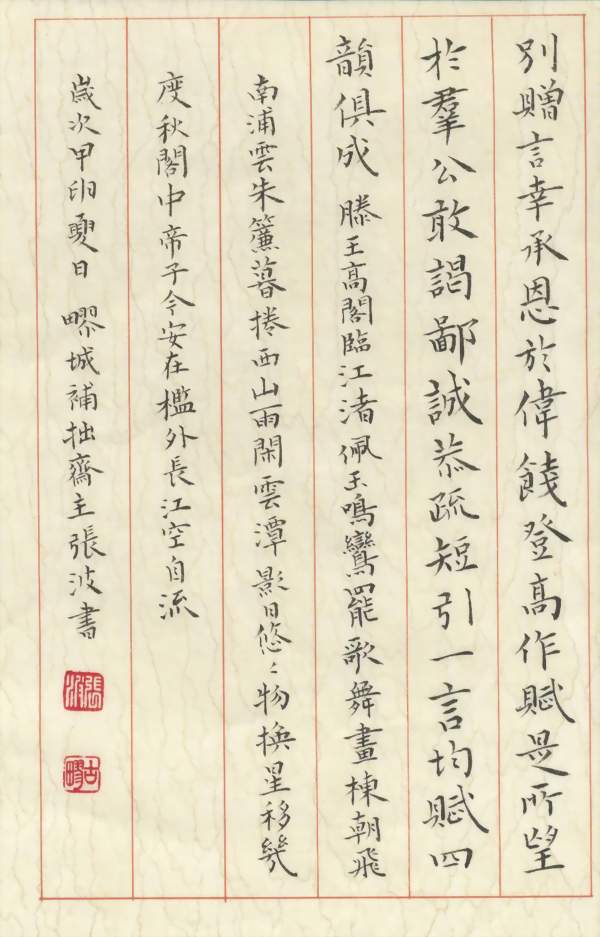 別贈言幸承恩於偉餞登高作賦是所望
於羣公敢謁鄙誠恭疏短引一言均賦四
韻俱成 滕王高閣臨江渚佩玉鳴鸞罷歌舞畫棟朝飛
南浦雲朱簾暮捲西山雨閑雲潭影日悠〻物換星移幾
度秋閣中帝子今安在檻外長江空自流
歲次甲卯夏日 疁城補拙齋主張波書
張波
古疁